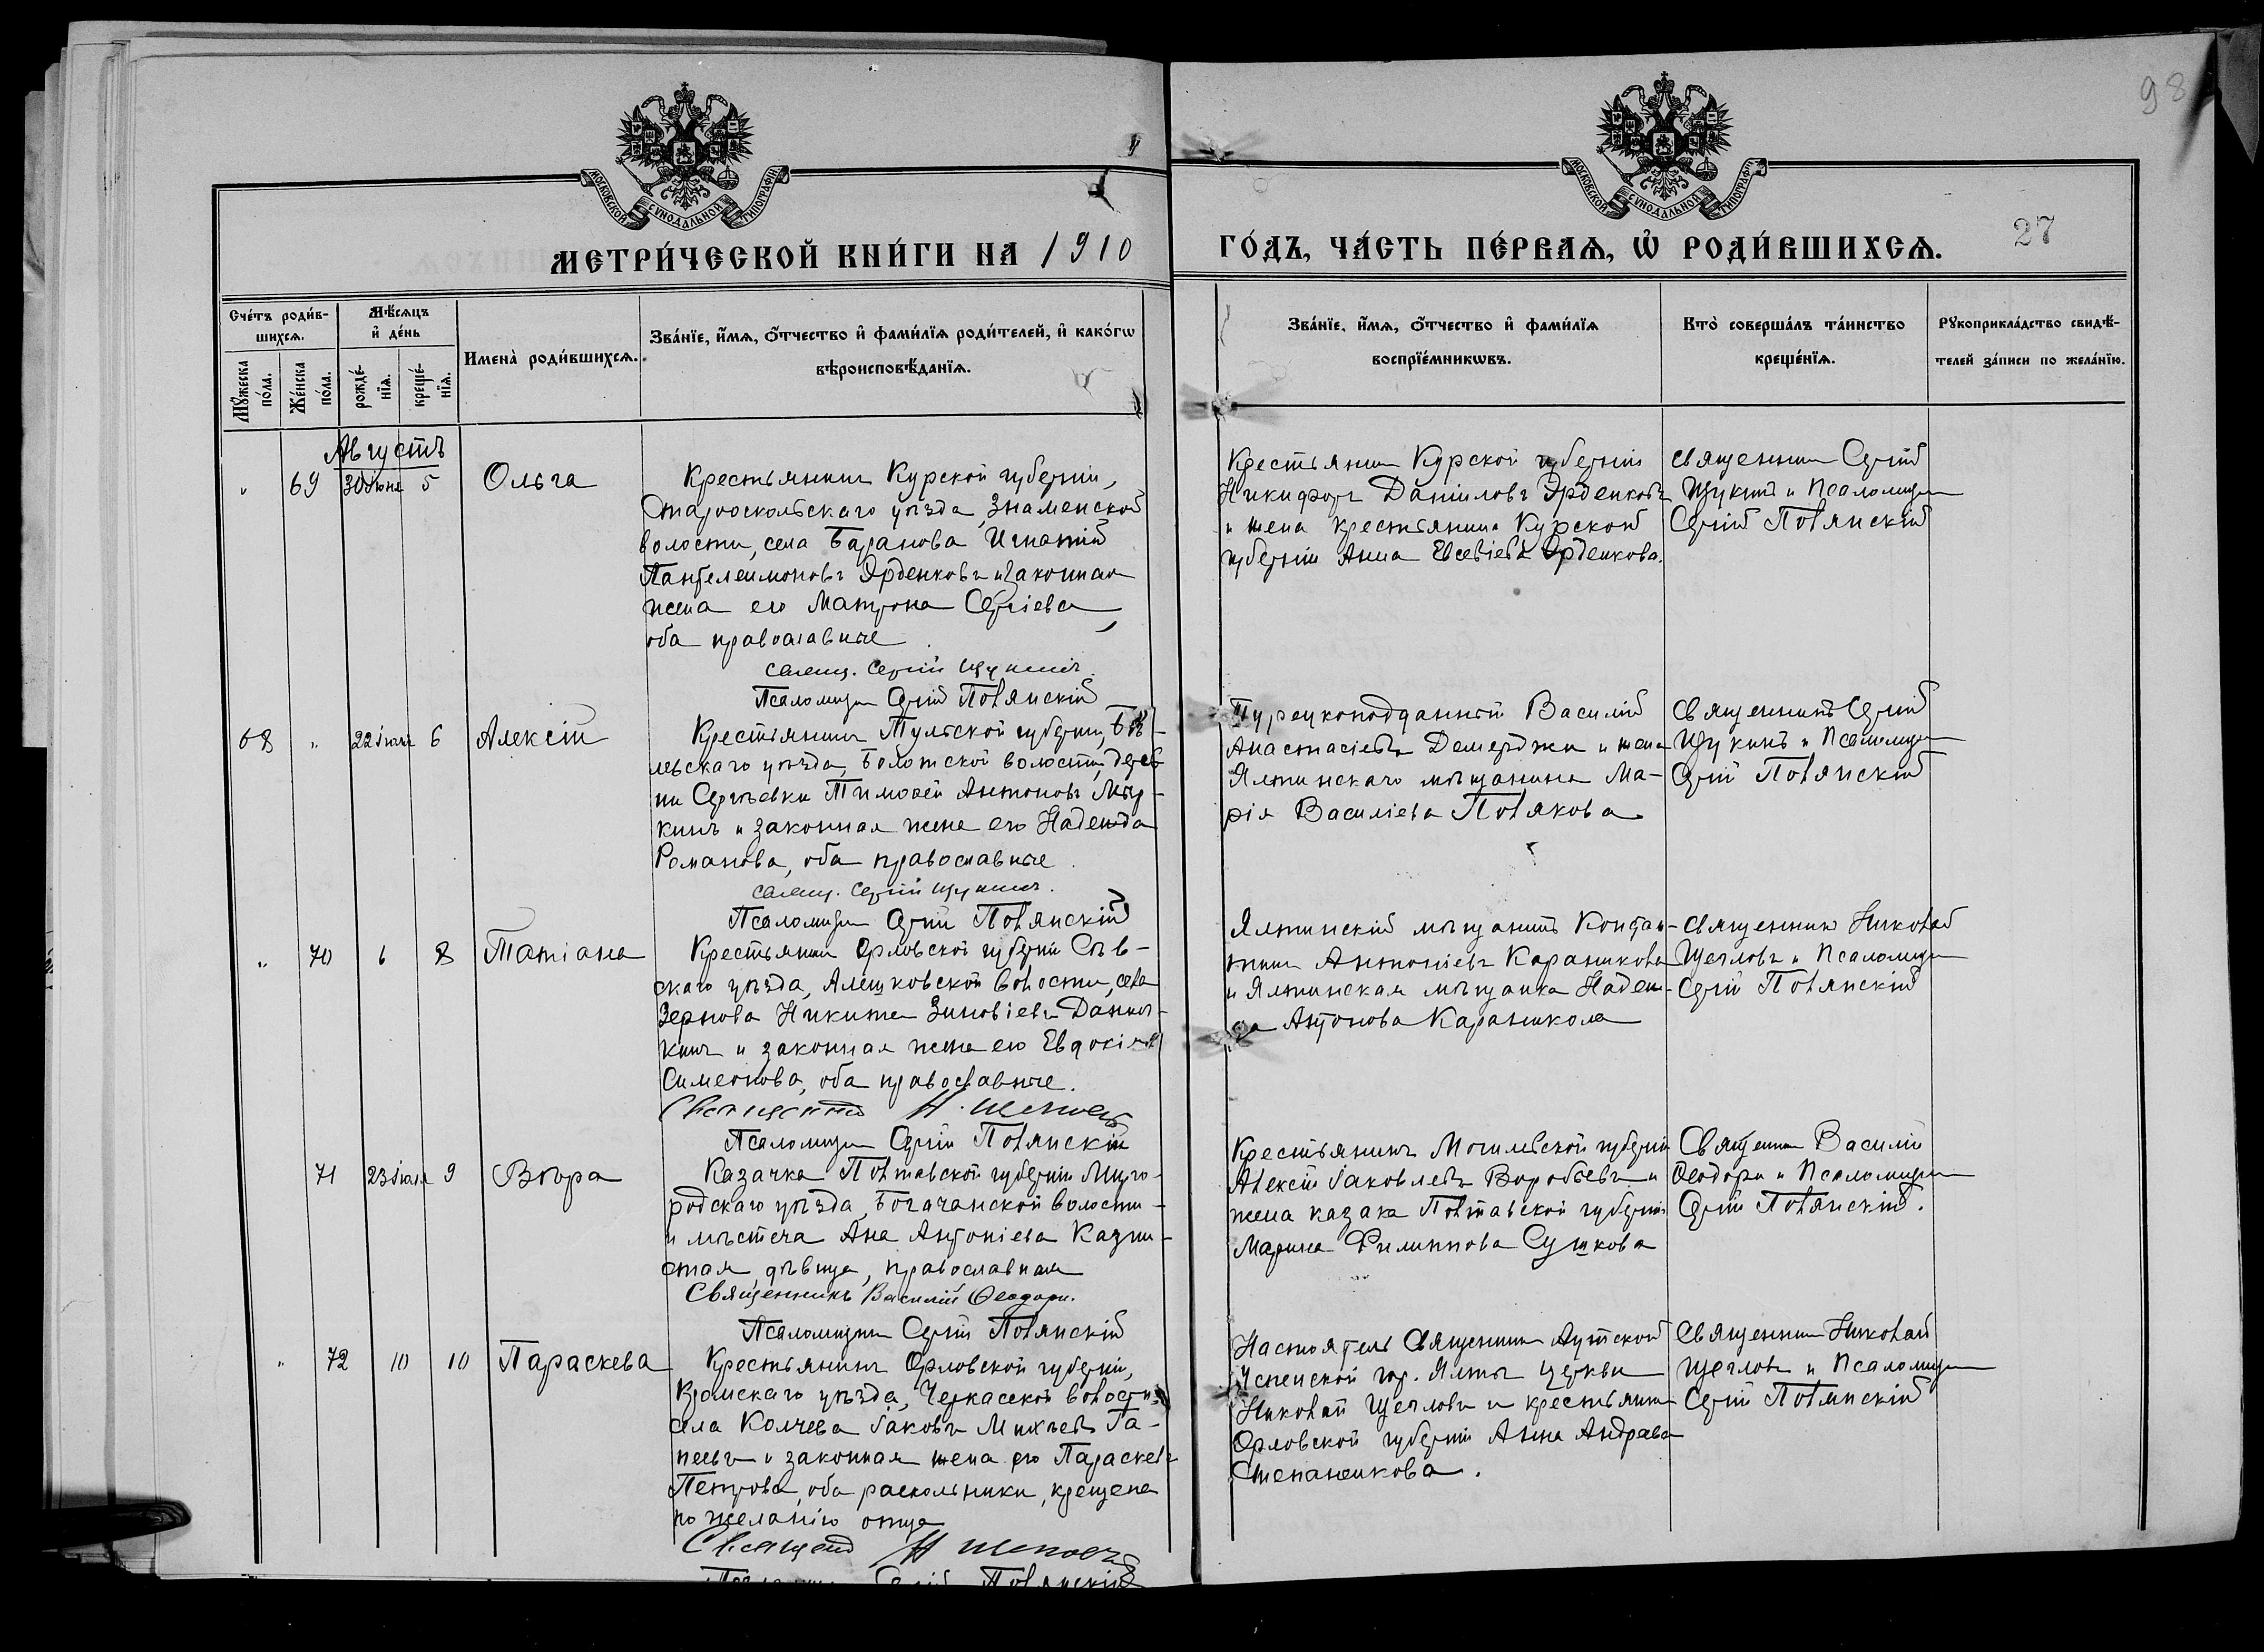 98
МОСКОВСКОЙ СУНОДАЛЬНОЙ ТИПОГРАФІИ
МОСКОВСКОЙ СУНОДАЛЬНОЙ ТИПОГРАФІИ
МЕТРИ́ЧЕСКОЙ КНИ́ГИ НА 1910
ГО́ДЪ, ЧА́СТЬ ПЕ́РВАѦ, Ѡ҆ РОДИ́ВШИХСѦ.
27
Сче́тъ роди́в-
шихсѧ.
Мѣ́сѧцъ
и҆ де́нь
Мꙋ́жеска
по́ла.
Же́нска
по́ла.
рожде́-
нїѧ.
креще́-
нїѧ.
Имена̀ роди́вшихсѧ.
Зва́нїе, и҆́мѧ, ѻ҆́тчество и҆ фами́лїѧ роди́телей, и҆ како́гѡ
вѣроисповѣ́данїѧ.
Зва́нїе, и҆́мѧ, ѻ҆́тчество и҆ фами́лїѧ
воспрїе́мникѡвъ.
Кто̀ соверша́лъ та́инство
креще́нїѧ.
Рꙋкоприкла́дство свидѣ́-
телей за́писи по жела́нїю.
Августъ
" 69 30 Іюня 5 Ольга
Крестьянинъ Курской губерніи,
Старооскольскаго уѣзда, Знаменской
волости, села Баранова Игнатій
Пантелеимоновъ Ярденковъ и законная
жена его Матрона Сергіева,
оба православные
свящ. Сергій Щукинъ.
Псаломщ Сергій Полянскій
Крестьянин Курской губерніи
Никифоръ Даніиловъ Ярденковъ
и жена крестьянина Курской
губерніи Анна Евсевіева Ярденкова.
Священник Сергій
Щукинъ и Псаломщ
Сергій Полянскій
68 " 22 Іюля 6 Алексій
Крестьянинъ Тульской губерніи, Бѣ-
левскаго уѣзда, Болотской волости, дерев
ни Сергѣевки Тимоѳей Антоновъ
кинъ и законная жена его Надежда
Романова, оба православные.
свящ. Сергій Щукинъ.
Псаломщ Сергій Полянскій
Турецкоподданный Василій
Анастасіевъ Демерджи и жена
Ялтинскаго мѣщанина Ма-
рія Василіева Полякова
Священникъ Сергій
Щукинъ и Псаломщ
Сергій Полянскій
" 70 6 8 Татіана
Крестьянин Орловской губерніи Сѣв-
скаго уѣзда, Алешковской волости, села
Зернова Никита Зиновіевъ Данил-
кинъ и законная жена его Евдокія
Симеонова, оба православные.
Священник Н. Щегловъ
Псаломщ Сергій Полянскій
Ялтинскій мѣщанинъ Констан-
тинъ Антоніевъ Караникола
и Ялтинская мѣщанка Надеж-
да Антонова Караникола
Священник Николай
Щегловъ и Псаломщ
Сергій Полянскій
71 23 Іюля 9 Вѣра
Казачка Полтавской губерніи Мирго-
родскаго уѣзда, Богачанской волости
и мѣстеча Ана Антоніева Казни-
стая, дѣвица, православная
Священникъ Василій Ѳеодори.
Псаломщик Сергій Полянскій
Крестьянинъ Могилевской губерніи
Алексій Іаковлевъ Воробьевъ и
жена казака Полтавской губерніи
Марина Филиппова Сушкова
Священник Василій
Ѳеодори и Псаломщик
Сергій Полянскій.
" 72 10 10 Параскева
Крестьянинъ Орловской губерніи,
Кромскаго уѣзда, Черкасской волости,
села Колчева Іаковъ Михеевъ Га-
и законная жена его Параскева
Петрова, оба раскольники, крещена
по желанію отца
Священ Н Щегловъ
Сергій Полянскій
Настоятель Священник Аутской
Успенской гор. Ялты церкви
Николай Щегловъ и крестьянка
Орловской губерніи Анна Андреева
Степанникова.
Священник Николай
Щегловъ и Псаломщ
Сергій Полянскій